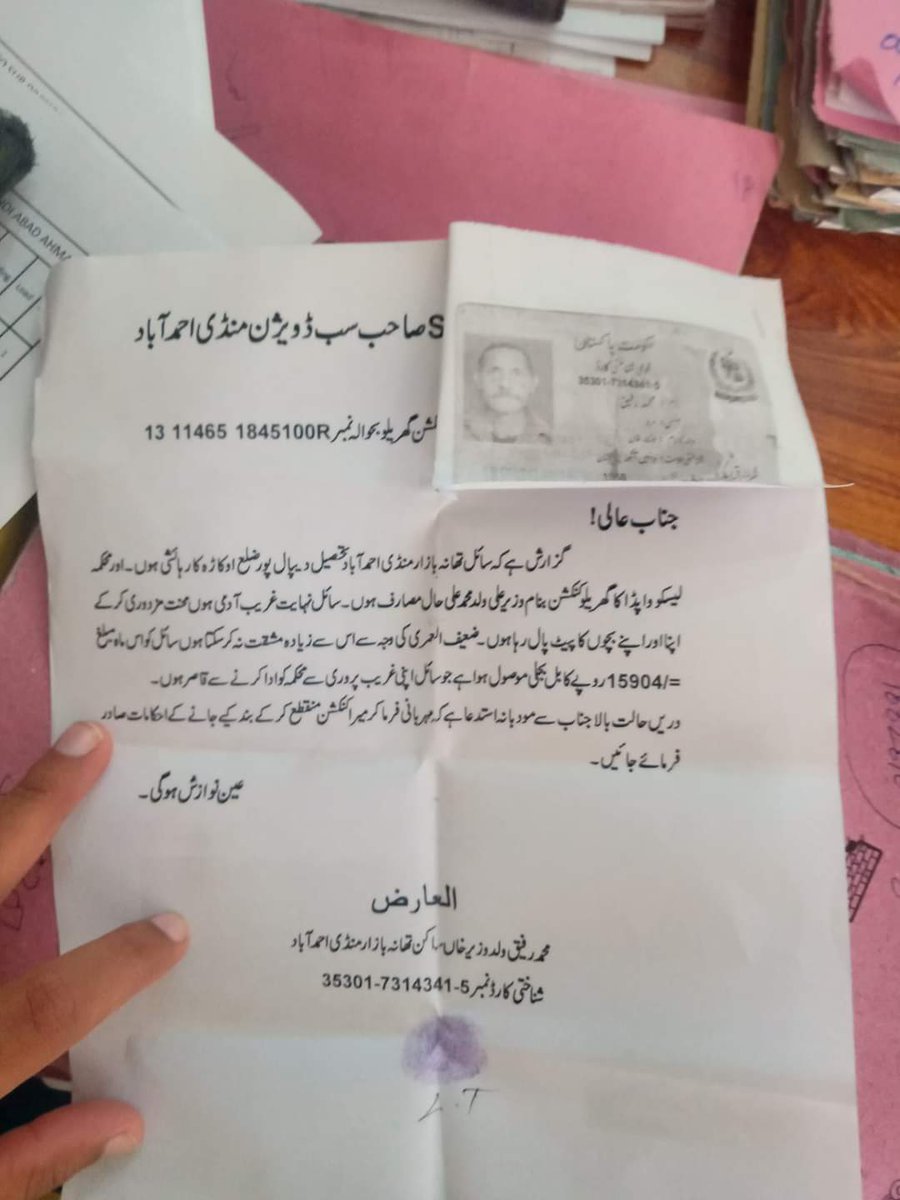 DI ABAD AHMA
S صاحب سب ڈویژن منڈی احمد آباد
حکومت پاکستان
قومی شناختی کارڈ
35301-7314341-5
محمد رفیق
کنکشن گھریلو بحوالہ نمبر 13 11465 1845100R
جناب عالی!
گزارش ہے کہ سائل تھانہ بازار منڈی احمد آباد تحصیل دیپال پور ضلع اوکاڑہ کا رہائشی ہوں۔ اور محکمہ
لیسکو واپڈا کا گھریلو کنکشن بنام وزیر علی ولد محمد علی حال مصارف ہوں۔ سائل نہایت غریب آدمی ہوں محنت مزدوری کر کے
اپنا اور اپنے بچوں کا پیٹ پال رہا ہوں۔ ضعیف العمری کی وجہ سے اس سے زیادہ مشقت نہ کر سکتا ہوں سائل کو اس ماہ مبلغ
15904/= روپے کا بل بجلی موصول ہوا ہے جو سائل اپنی غریب پروری سے محکمہ کو ادا کرنے سے قاصر ہوں۔
دریں حالت بالا جناب سے مودبانہ استدعا ہے کہ مہربانی فرما کر میرا کنکشن منقطع کر کے بند کیے جانے کے احکامات صادر
فرمائے جائیں۔
عین نوازش ہوگی۔
العارض
محمد رفیق ولد وزیر خاں ساکن تھانہ بازار منڈی احمد آباد
شناختی کارڈ نمبر 35301-7314341-5
L.T